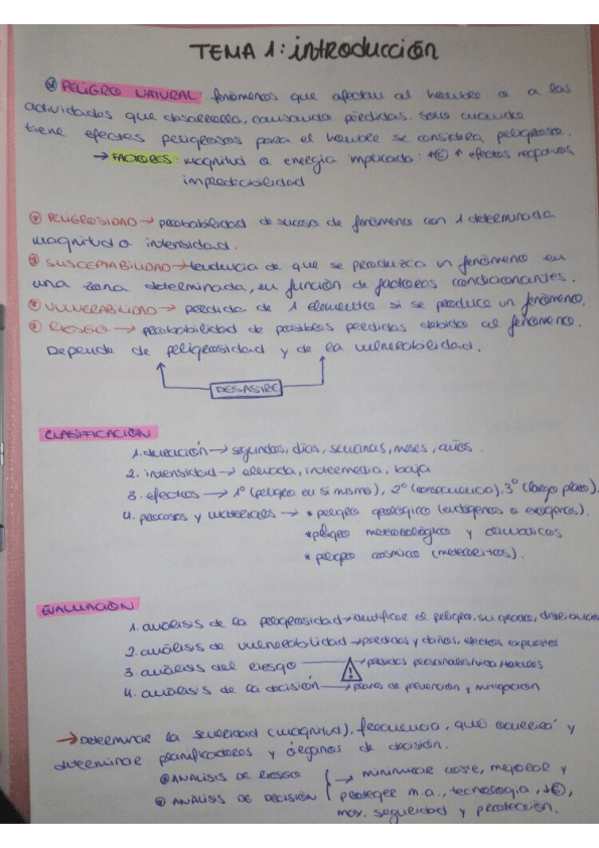 TEMA 1: introducción
PELIGRO NATURAL: fenómenos que afectan al hombre o a las
actividades que desarrolla, causando pérdidas. Solo cuando
tiene efectos peligrosos para el hombre se considera peligroso.
→ FACTORES: magnitud o energía implicada: ↑E ↑ efectos negativos
impredecibilidad
PELIGROSIDAD → probabilidad de suceso de fenómenos con 1 determinada
magnitud o intensidad.
SUSCEPTABILIDAD → tendencia de que se produzca un fenómeno en
una zona determinada, en función de factores condicionantes.
VULNERABILIDAD → pérdida de 1 elemento si se produce un fenómeno.
RIESGO → probabilidad de posibles perdidas debidas al fenómeno.
Depende de peligrosidad y de la vulnerabilidad.
DESASTRE
CLASIFICACIÓN
1. duración → segundos, días, semanas, meses, años.
2. intensidad → elevada, intermedia, baja
3. efectos → 1º (peligro en si mismo), 2º (consecuencia), 3º (largo plazo).
4. procesos y materiales → * peligro geológico (endógenos o exógenos).
* peligro meteorológicos y climáticos
* peligro cósmico (meteoritos).
EVALUACIÓN
1. análisis de la peligrosidad → identificar el peligro, su
2. análisis de vulnerabilidad → perdidas y daños, efectos expuestos
3. análisis del riesgo → perdidas personales/
4. análisis de la decisión → planes de prevención y mitigación
→ Determinar la severidad (magnitud), frecuencia, qué ocurrirá y
determinar planificadores y órganos de decisión.
ANÁLISIS DE RIESGO → minimizar coste, mejorar y
ANÁLISIS DE DECISIÓN proteger m.a., tecnología, ↓€,
max. seguridad y protección.